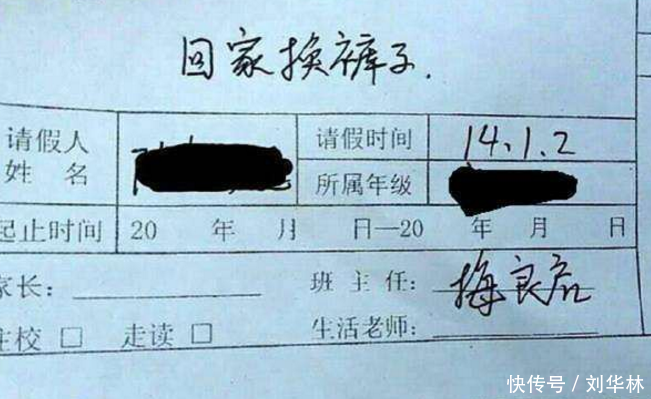 回家换裤子.
请假人
姓 名
请假时间 14.1.2
所属年级
起止时间 20 年 月 日—20 年 月 日
家长: 班 主 任: 梅良
住校 □ 走读 □ 生活老师:
快传号 / 刘华林